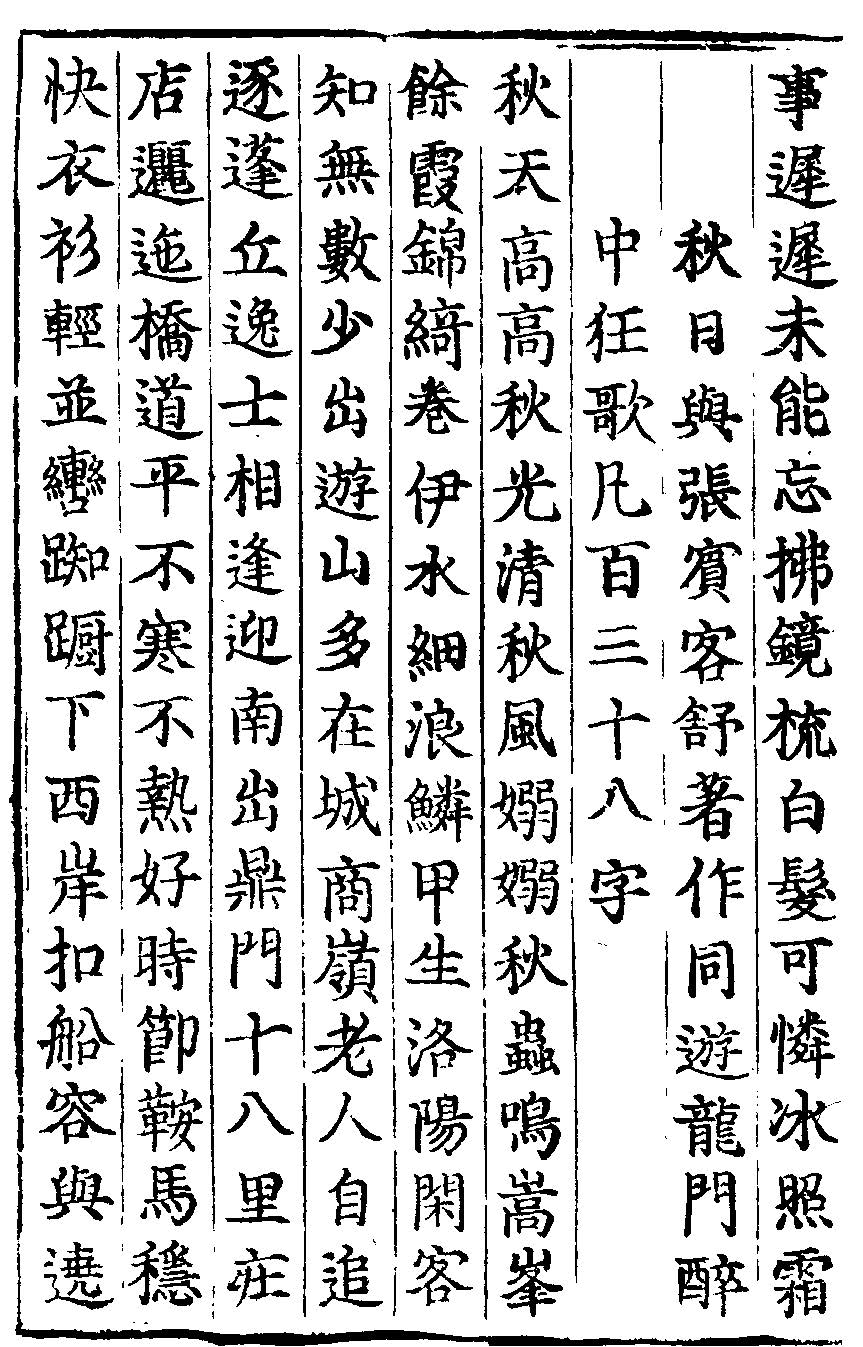 事遲遲未能忘拂鏡梳白髮可憐冰照霜
秋日與張賓客舒著作同遊龍門醉
中狂歌凡百三十八字
秋天高高秋光清秋風嫋嫋秋蟲鳴嵩峯
餘霞錦綺卷伊水細浪鱗甲生洛陽閑客
知無數少出遊山多在城商嶺老人自追
逐蓬丘逸士相逢迎南出鼎門十八里莊
店邐迤橋道平不寒不熱好時節鞍馬穩
快衣衫輕並轡踟蹰下西岸扣船容與遶